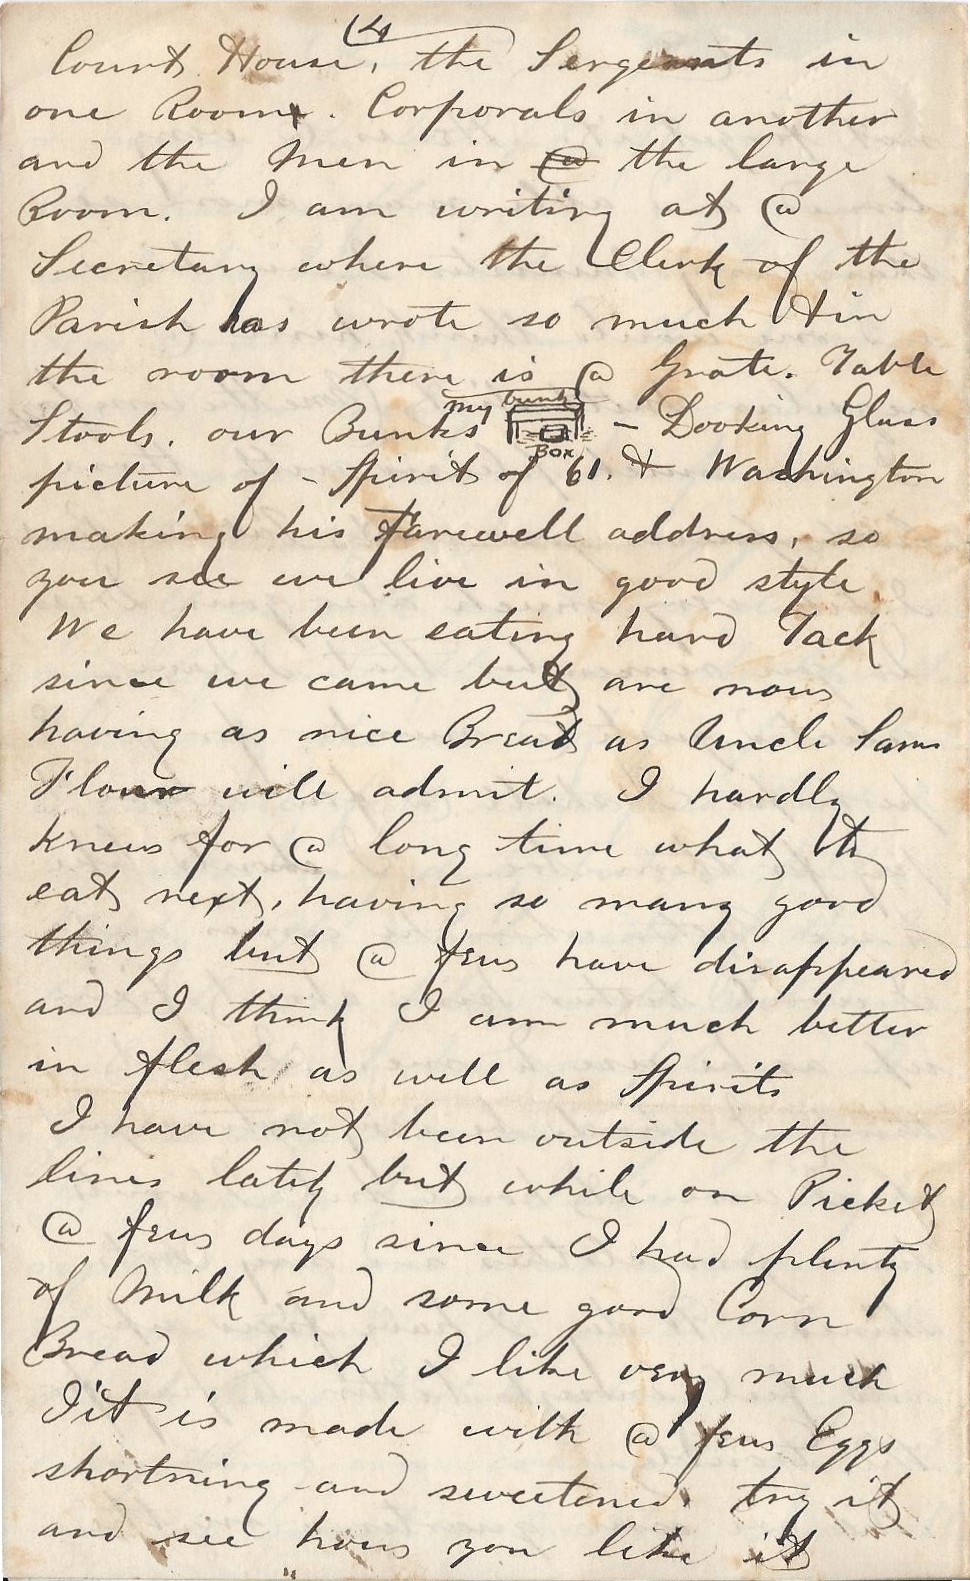 (4
Court House, the Sergeants in
one Room. Corporals in another
and the Men in @ the large
Room. I am writing at @
Secretary where the Clerk of the
Parish has wrote so much & in
the room there is @ Grate. Table
Stools. our Bunks my bunk BOX – Looking Glass
picture of – Spirit of 61. & Washington
making his Farewell address, so
you see we live in good style.
We have been eating hard Tack
since we came but are now
having as nice Bread as Uncle Sams
Flour will admit. I hardly
knew for @ long time what to
eat next, having so many good
things but @ few have disappeared
and I think I am much better
in flesh as well as Spirits
I have not been outside the
lines lately but while on Picket
@ few days since I had plenty
of Milk and some good Corn
Bread which I like very much
It is made with @ few Eggs
shortning and sweetened. try it
and see how you like it